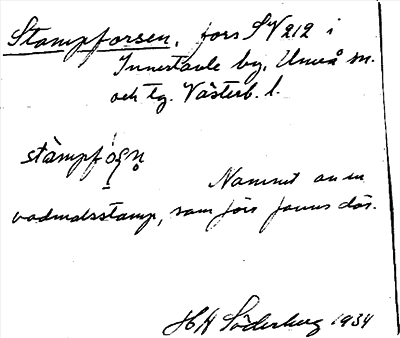 Stampforsen, fors SV 212 i
Innertavle by, Umeå sn.
och tg. Västerb. l.
stàmpfóṣṇ
Namnet av en
vadmalsstamp, som förr fanns där.
HH Söderberg 1934